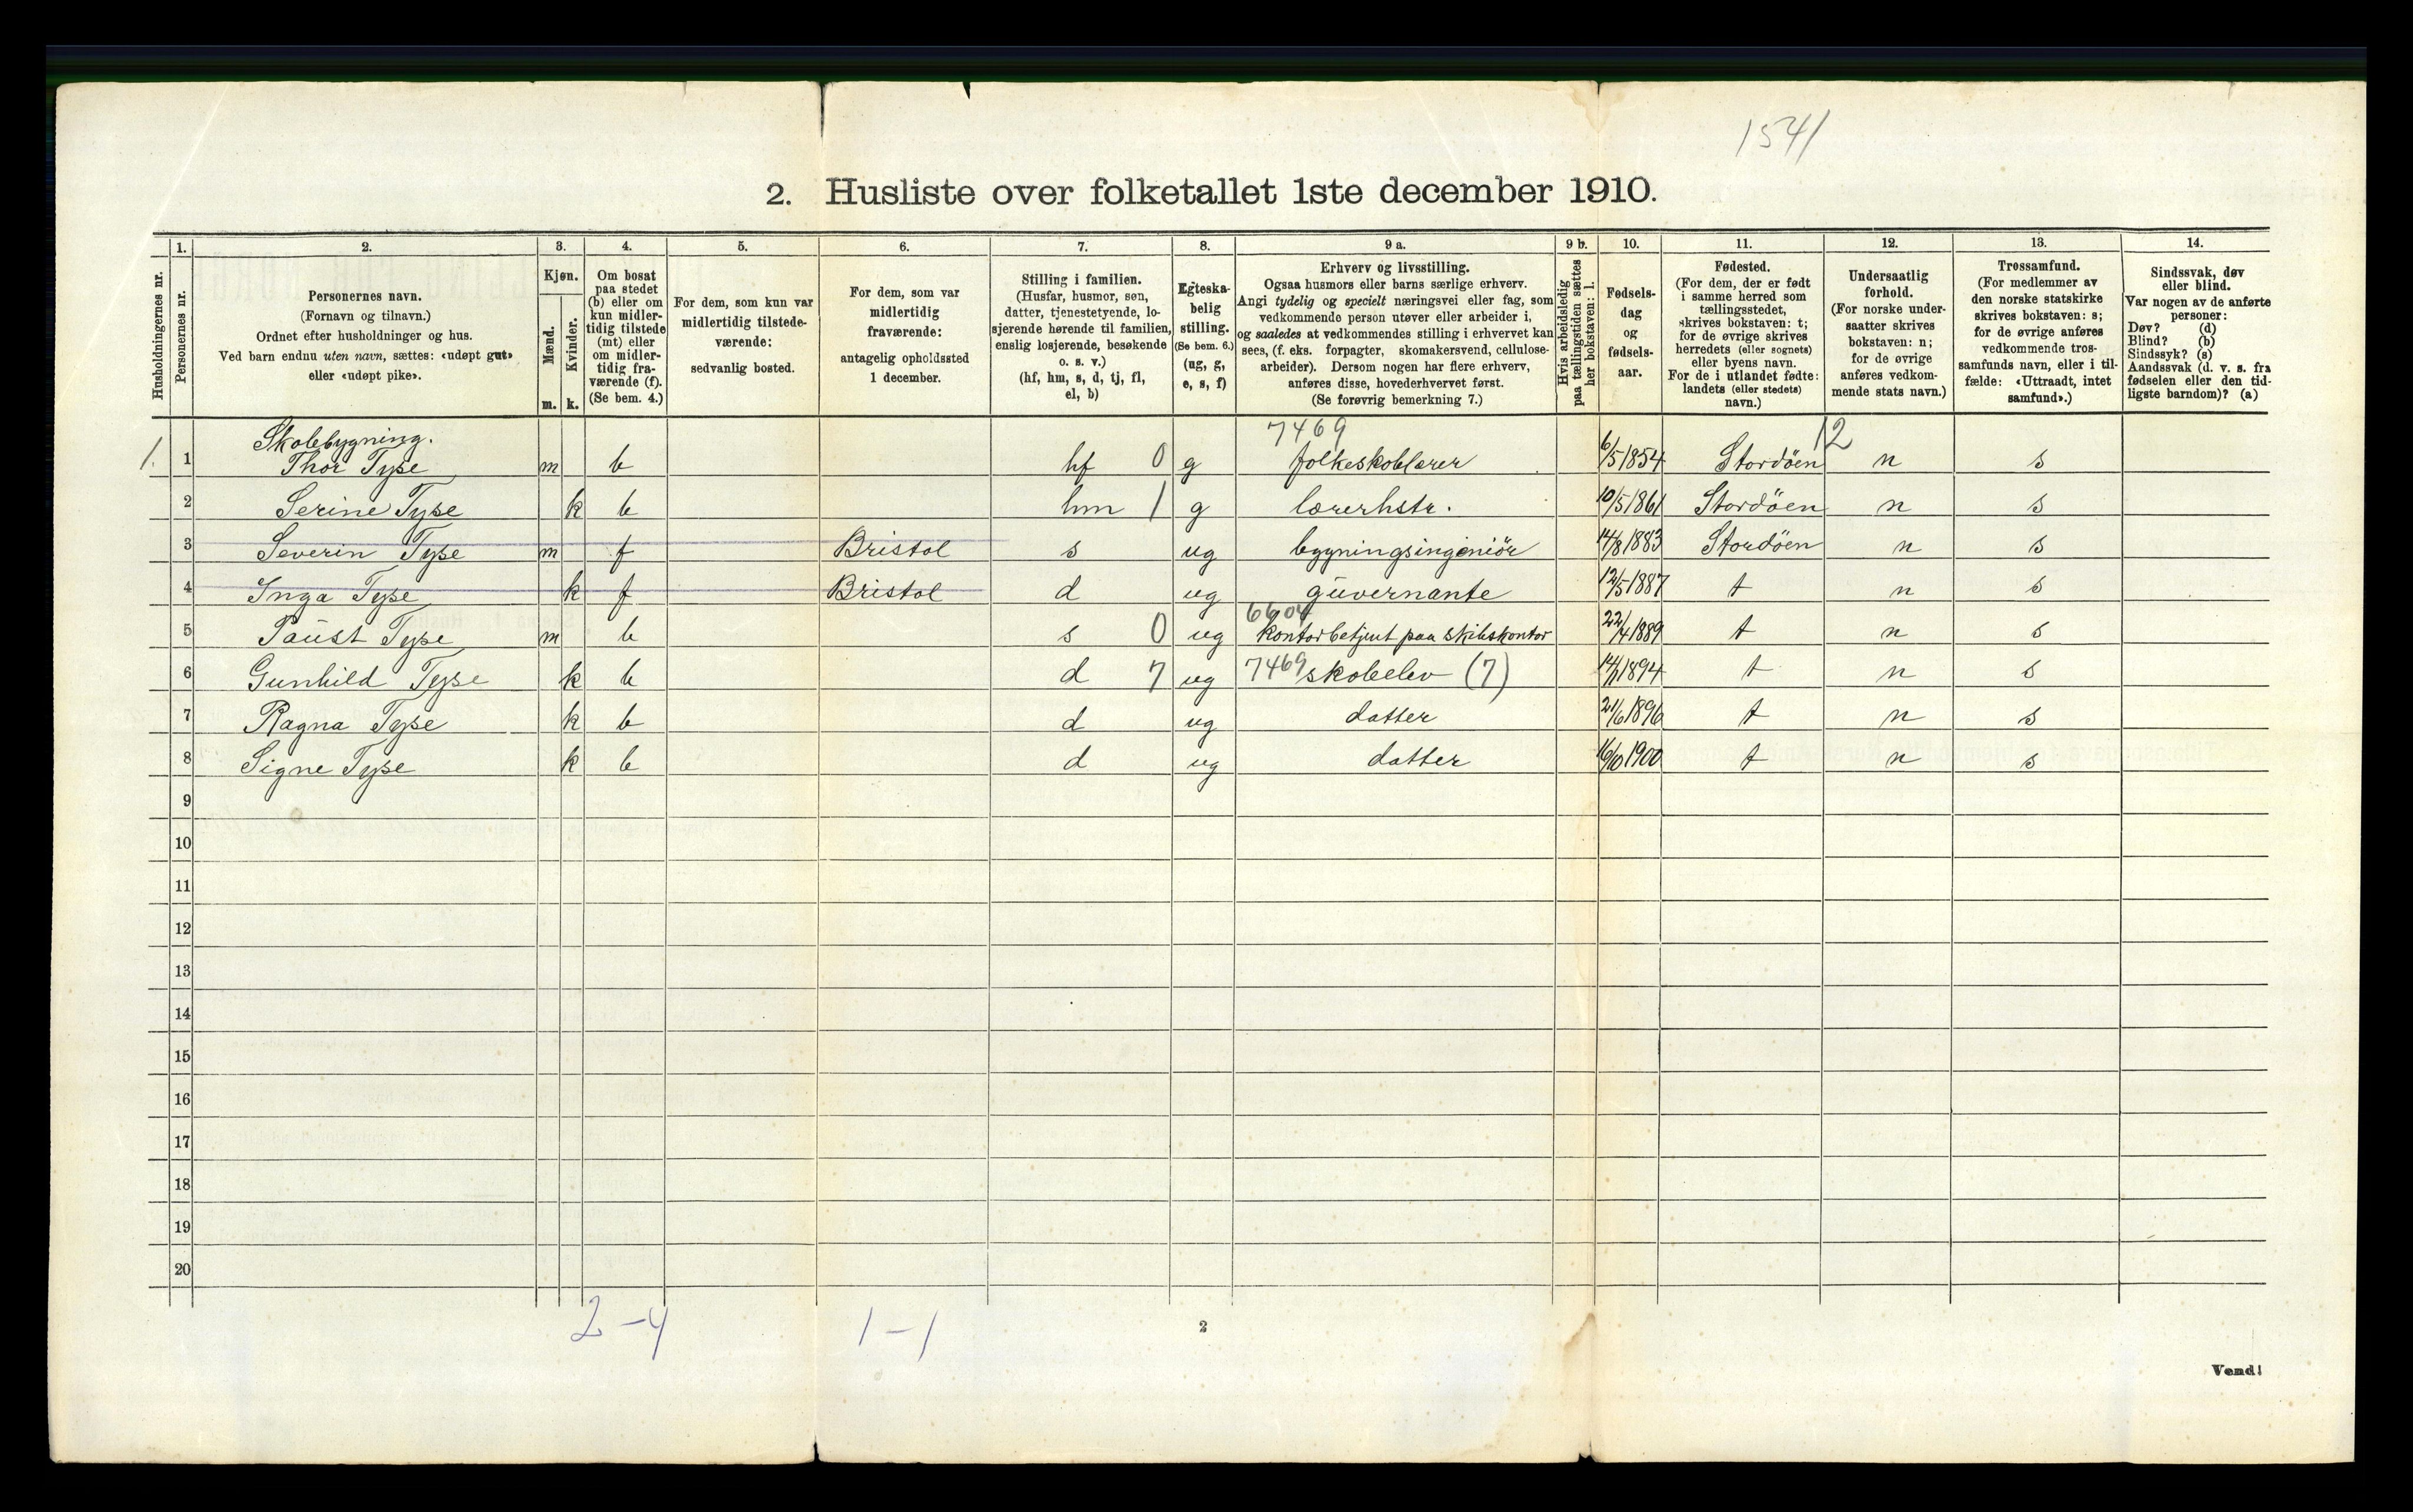 1541
2. Husliste over folketallet 1ste december 1910.
Husholdningernes nr.
1.
Personernes nr.
2.
Personernes navn.
(Fornavn og tilnavn.)
Ordnet efter husholdninger og hus.
Ved barn endnu uten navn, sættes: «udøpt gut»
eller «udøpt pike».
3.
Kjøn.
Mænd.
Kvinder.
m. k.
4.
Om bosat
paa stedet
(b) eller om
kun midler-
tidig tilstede
(mt) eller
om midler-
tidig fra-
værende (f).
(Se bem. 4.)
5.
For dem, som kun var
midlertidig tilstede-
værende:
sedvanlig bosted.
6.
For dem, som var
midlertidig
fraværende:
antagelig opholdssted
1 december.
7.
Stilling i familien.
(Husfar, husmor, søn,
datter, tjenestetyende, lo-
sjerende hørende til familien,
enslig losjerende, besøkende
o. s. v.)
(hf, hm, s, d, tj, fl,
el, b)
8.
Egteska-
belig
stilling.
(Se bem. 6.)
(ug, g,
e, s, f)
9 a.
Erhverv og livsstilling.
Ogsaa husmors eller barns særlige erhverv.
Angi tydelig og specielt næringsvei eller fag, som
vedkommende person utøver eller arbeider i,
og saaledes at vedkommendes stilling i erhvervet kan
sees, (f. eks. forpagter, skomakersvend, cellulose-
arbeider). Dersom nogen har flere erhverv,
anføres disse, hovederhvervet først.
(Se forøvrig bemerkning 7.)
9 b.
Hvis arbeidsledig
paa tællingstiden sættes
her bokstaven: l.
10.
Fødsels-
dag
og
fødsels-
aar.
11.
Fødested.
(For dem, der er født
i samme herred som
tællingsstedet,
skrives bokstaven: t;
for de øvrige skrives
herredets (eller sognets)
eller byens navn.
For de i utlandet fødte:
landets (eller stedets)
navn.)
12.
Undersaatlig
forhold.
(For norske under-
saatter skrives
bokstaven: n;
for de øvrige
anføres vedkom-
mende stats navn.)
13.
Trossamfund.
(For medlemmer av
den norske statskirke
skrives bokstaven: s;
for de øvrige anføres
vedkommende tros-
samfunds navn, eller i til-
fælde: «Uttraadt, intet
samfund».)
14.
Sindssvak, døv
eller blind.
Var nogen av de anførte
personer:
Døv? (d)
Blind? (b)
Sindssyk? (s)
Aandssvak (d. v. s. fra
fødselen eller den tid-
ligste barndom)? (a)
Skolebygning. 7469 12
1. 1 Thor Tyse m b hf 0 g folkeskolelærer 6/5 1854 Stordöen n s
2 Serine Tyse k b hm 1 g lærerhstr. 10/5 1861 Stordöen n s
3 Severin Tyse m f Bristol s ug bygningsingeniör 14/8 1883 Stordöen n s
4 Inga Tyse k f Bristol d ug guvernante 12/5 1887 t n s
6604
5 Paust Tyse m b s 0 ug kontorbetjent paa skibskontor 22/4 1889 t n s
6 Gunhild Tyse k b d 7 ug 7469 skoleelev (7) 14/1 1894 t n s
7 Ragna Tyse k b d ug datter 21/6 1896 t n s
8 Signe Tyse k b d ug datter 16/10 1900 t n s
9
10
11
12
13
14
15
16
17
18
19
20
2-4 1-1
2
Vend!